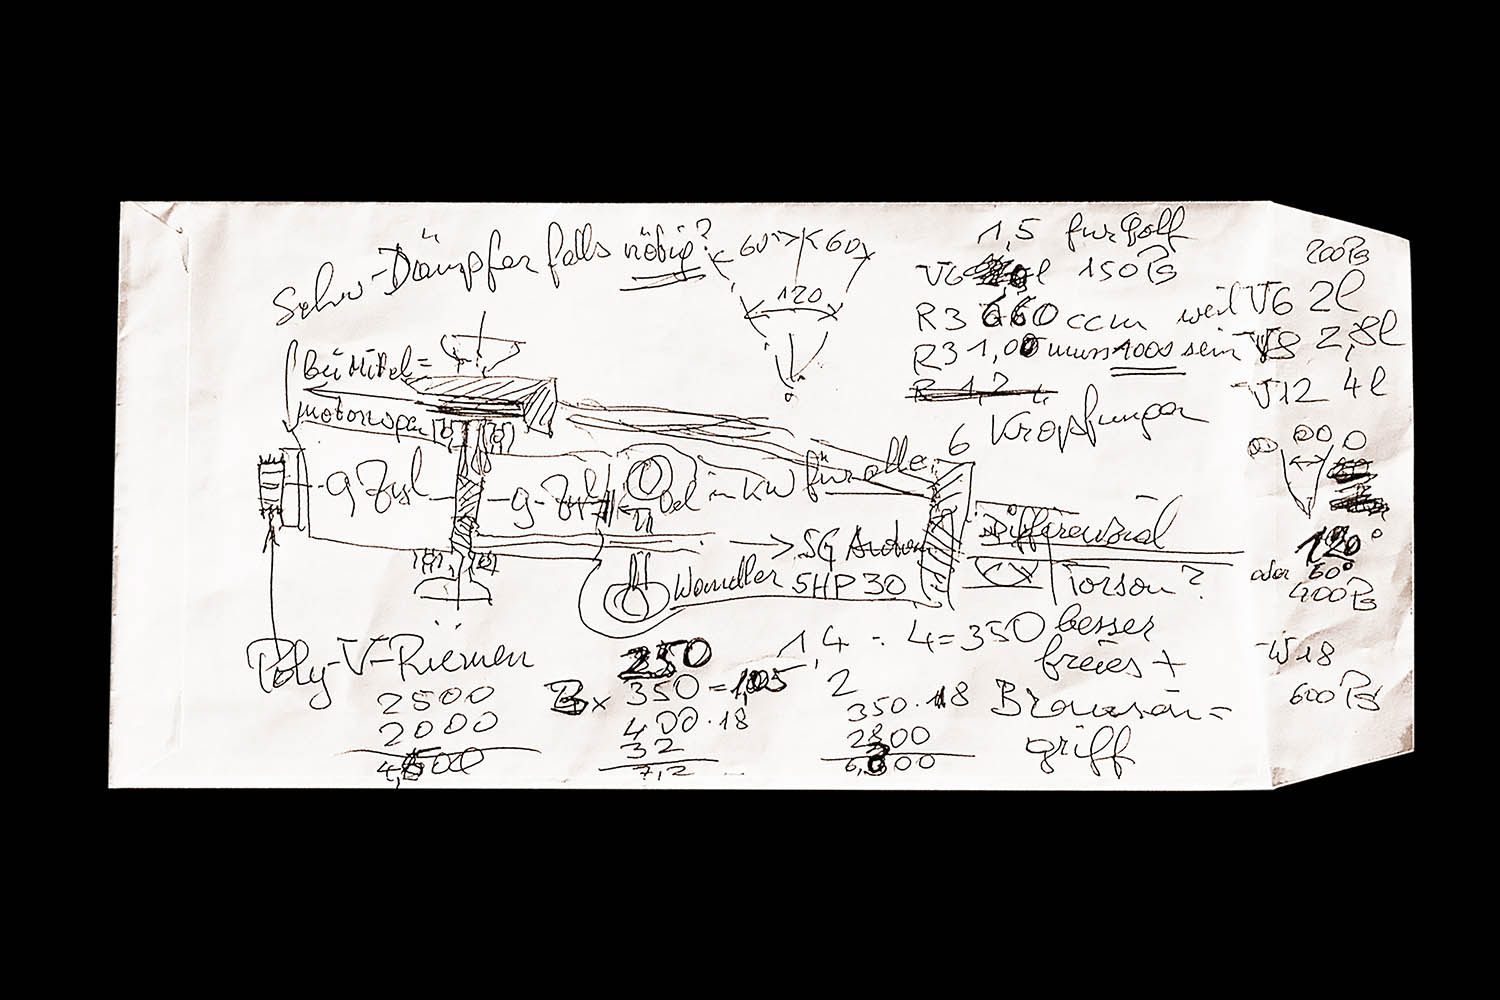 Schw-Dämpfer falls nötig?
60° 60
120
1,5 für Golf
V6 l 150 PS
R3 660 ccm weil V6 2l
200 PS
R3 1,00 muss 1000 sein V8 2,8l
R 1,2
V12 4l
Kröpfungen
6
Bei Mittel=
motorwellen
9 Zyl
9-Zyl
Oel in KW für alle
120°
oder 60°
400 PS
SG
Wandler 5HP30
Differenzial
Torson?
besser
freies +
Browsäu=
griff
W18
600 PS
Poly-V-Riemen
2500
2000
4,500
250
x 350 = 1,05
400 · 18
32
7,2
1,4 : 4 = 350
2
350 · 18
2800
6,300